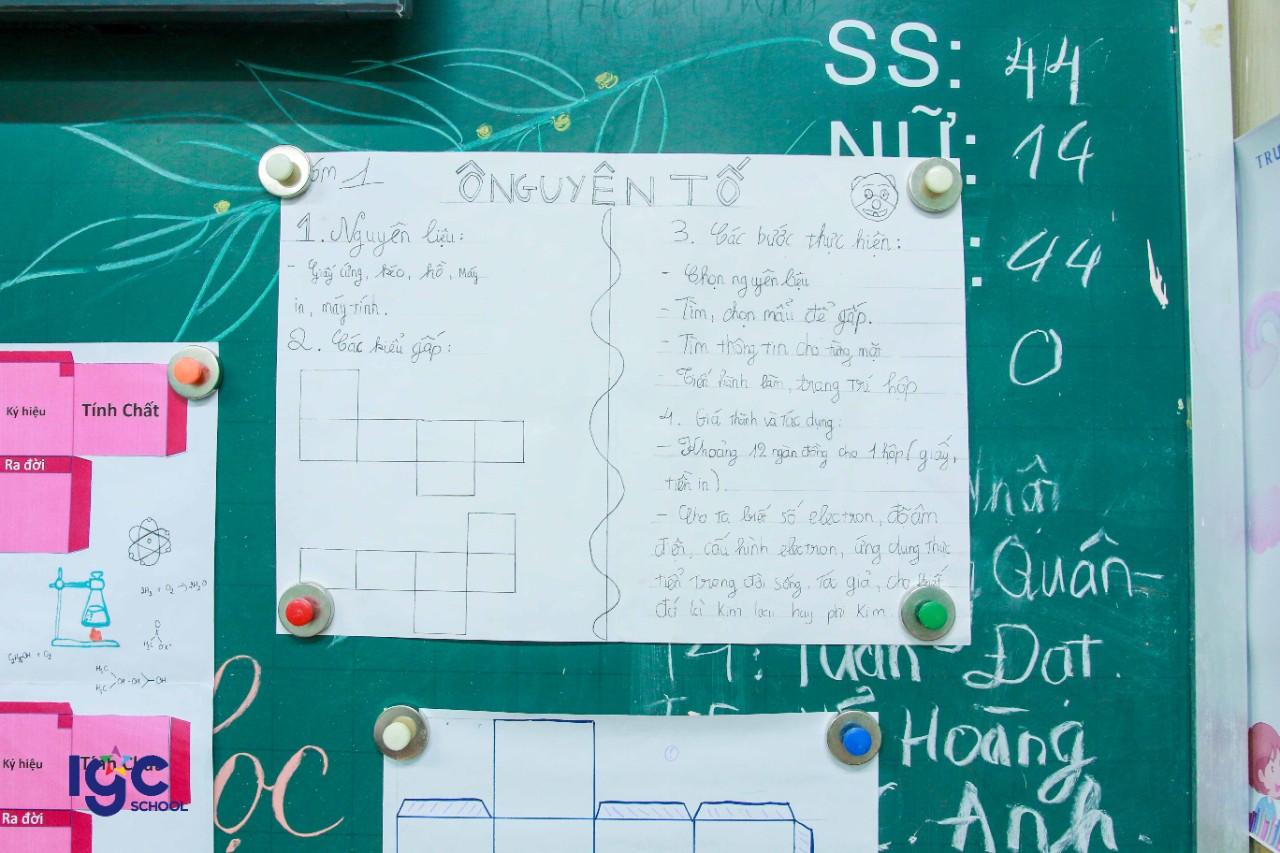 SS: 44
NỮ: 14
: 44
0
Nhật
Quân
T4: Tuấn Đạt.
Hoàng
Anh.
óm 1
Ô NGUYÊN TỐ
1. Nguyên liệu:
- Giấy cứng, kéo, hồ, máy
in, máy tính.
2. Các kiểu gấp:
3. Các bước thực hiện:
- Chọn nguyên liệu
- Tìm, chọn mẫu để gấp.
- Tìm thông tin cho từng mặt
- Tiến hành làm, trang trí hộp
4. Giá thành và tác dụng:
- Khoảng 12 ngàn đồng cho 1 hộp (giấy,
tiền in).
- Cho ta biết số electron, độ âm
điện, cấu hình electron, ứng dụng thực
tiển trong đời sống, tác giả, cho biết
đó là kim loại hay phi kim.
Ký hiệu
Tính Chất
Ra đời
Ký hiệu
Tính Chất
Ra đời
ọc
TRƯ
IGC
SCHOOL